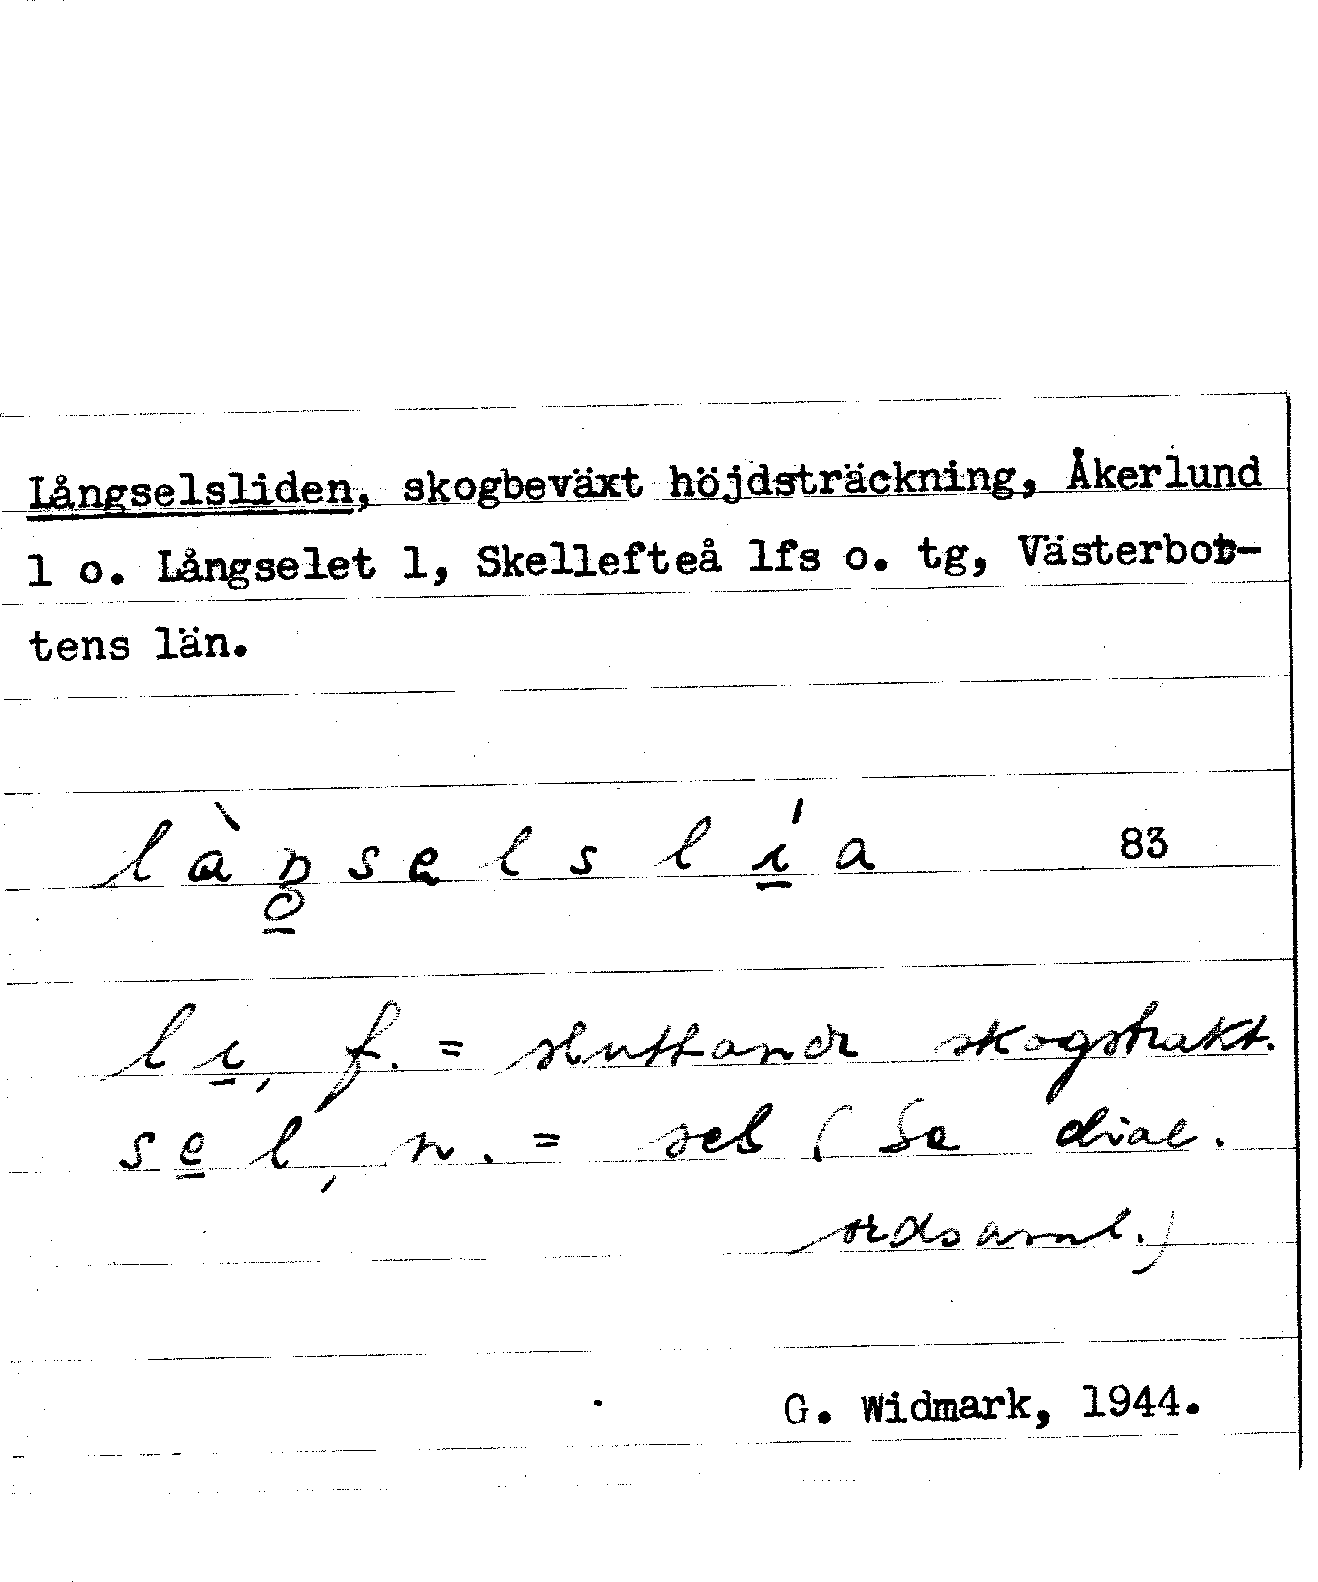 Långselsliden, skogbeväxt höjdsträckning, Åkerlund
1 o. Långselet 1, Skellefteå lfs o. tg, Västerbot-
tens län.
làŋselslí̱a 83
lı̱, f. = sluttande skogstrakt.
se̱l, n. = sel (Se dial.
ordsaml.)
G. Widmark, 1944.